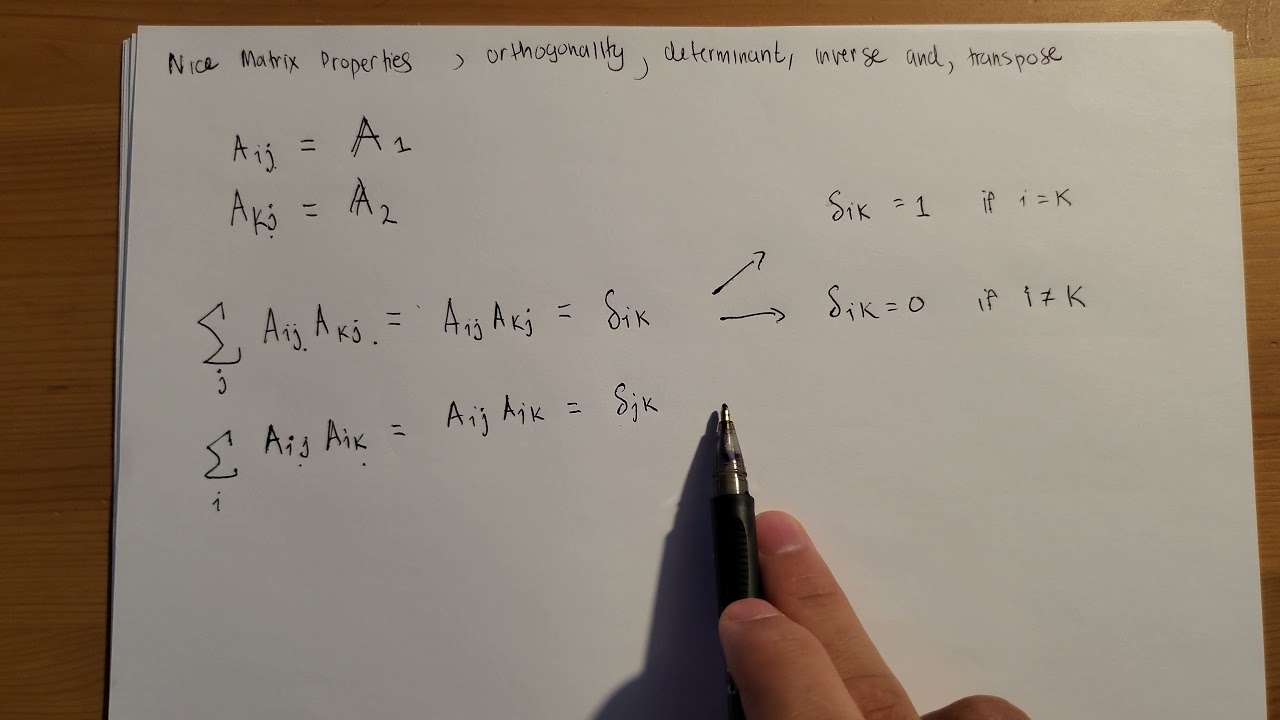 Nice Matrix Properties , orthogonality, determinant, inverse and, transpose
Aij = A1
Akj = A2
δik = 1 if i = k
∑j Aij Akj = Aij Akj = δik → δik = 0 if i ≠ k
∑i Aij Aik = Aij Aik = δjk